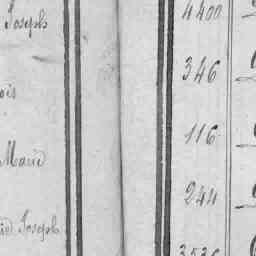 Joseph 4400
346
ois
116
Marie
244
Joseph